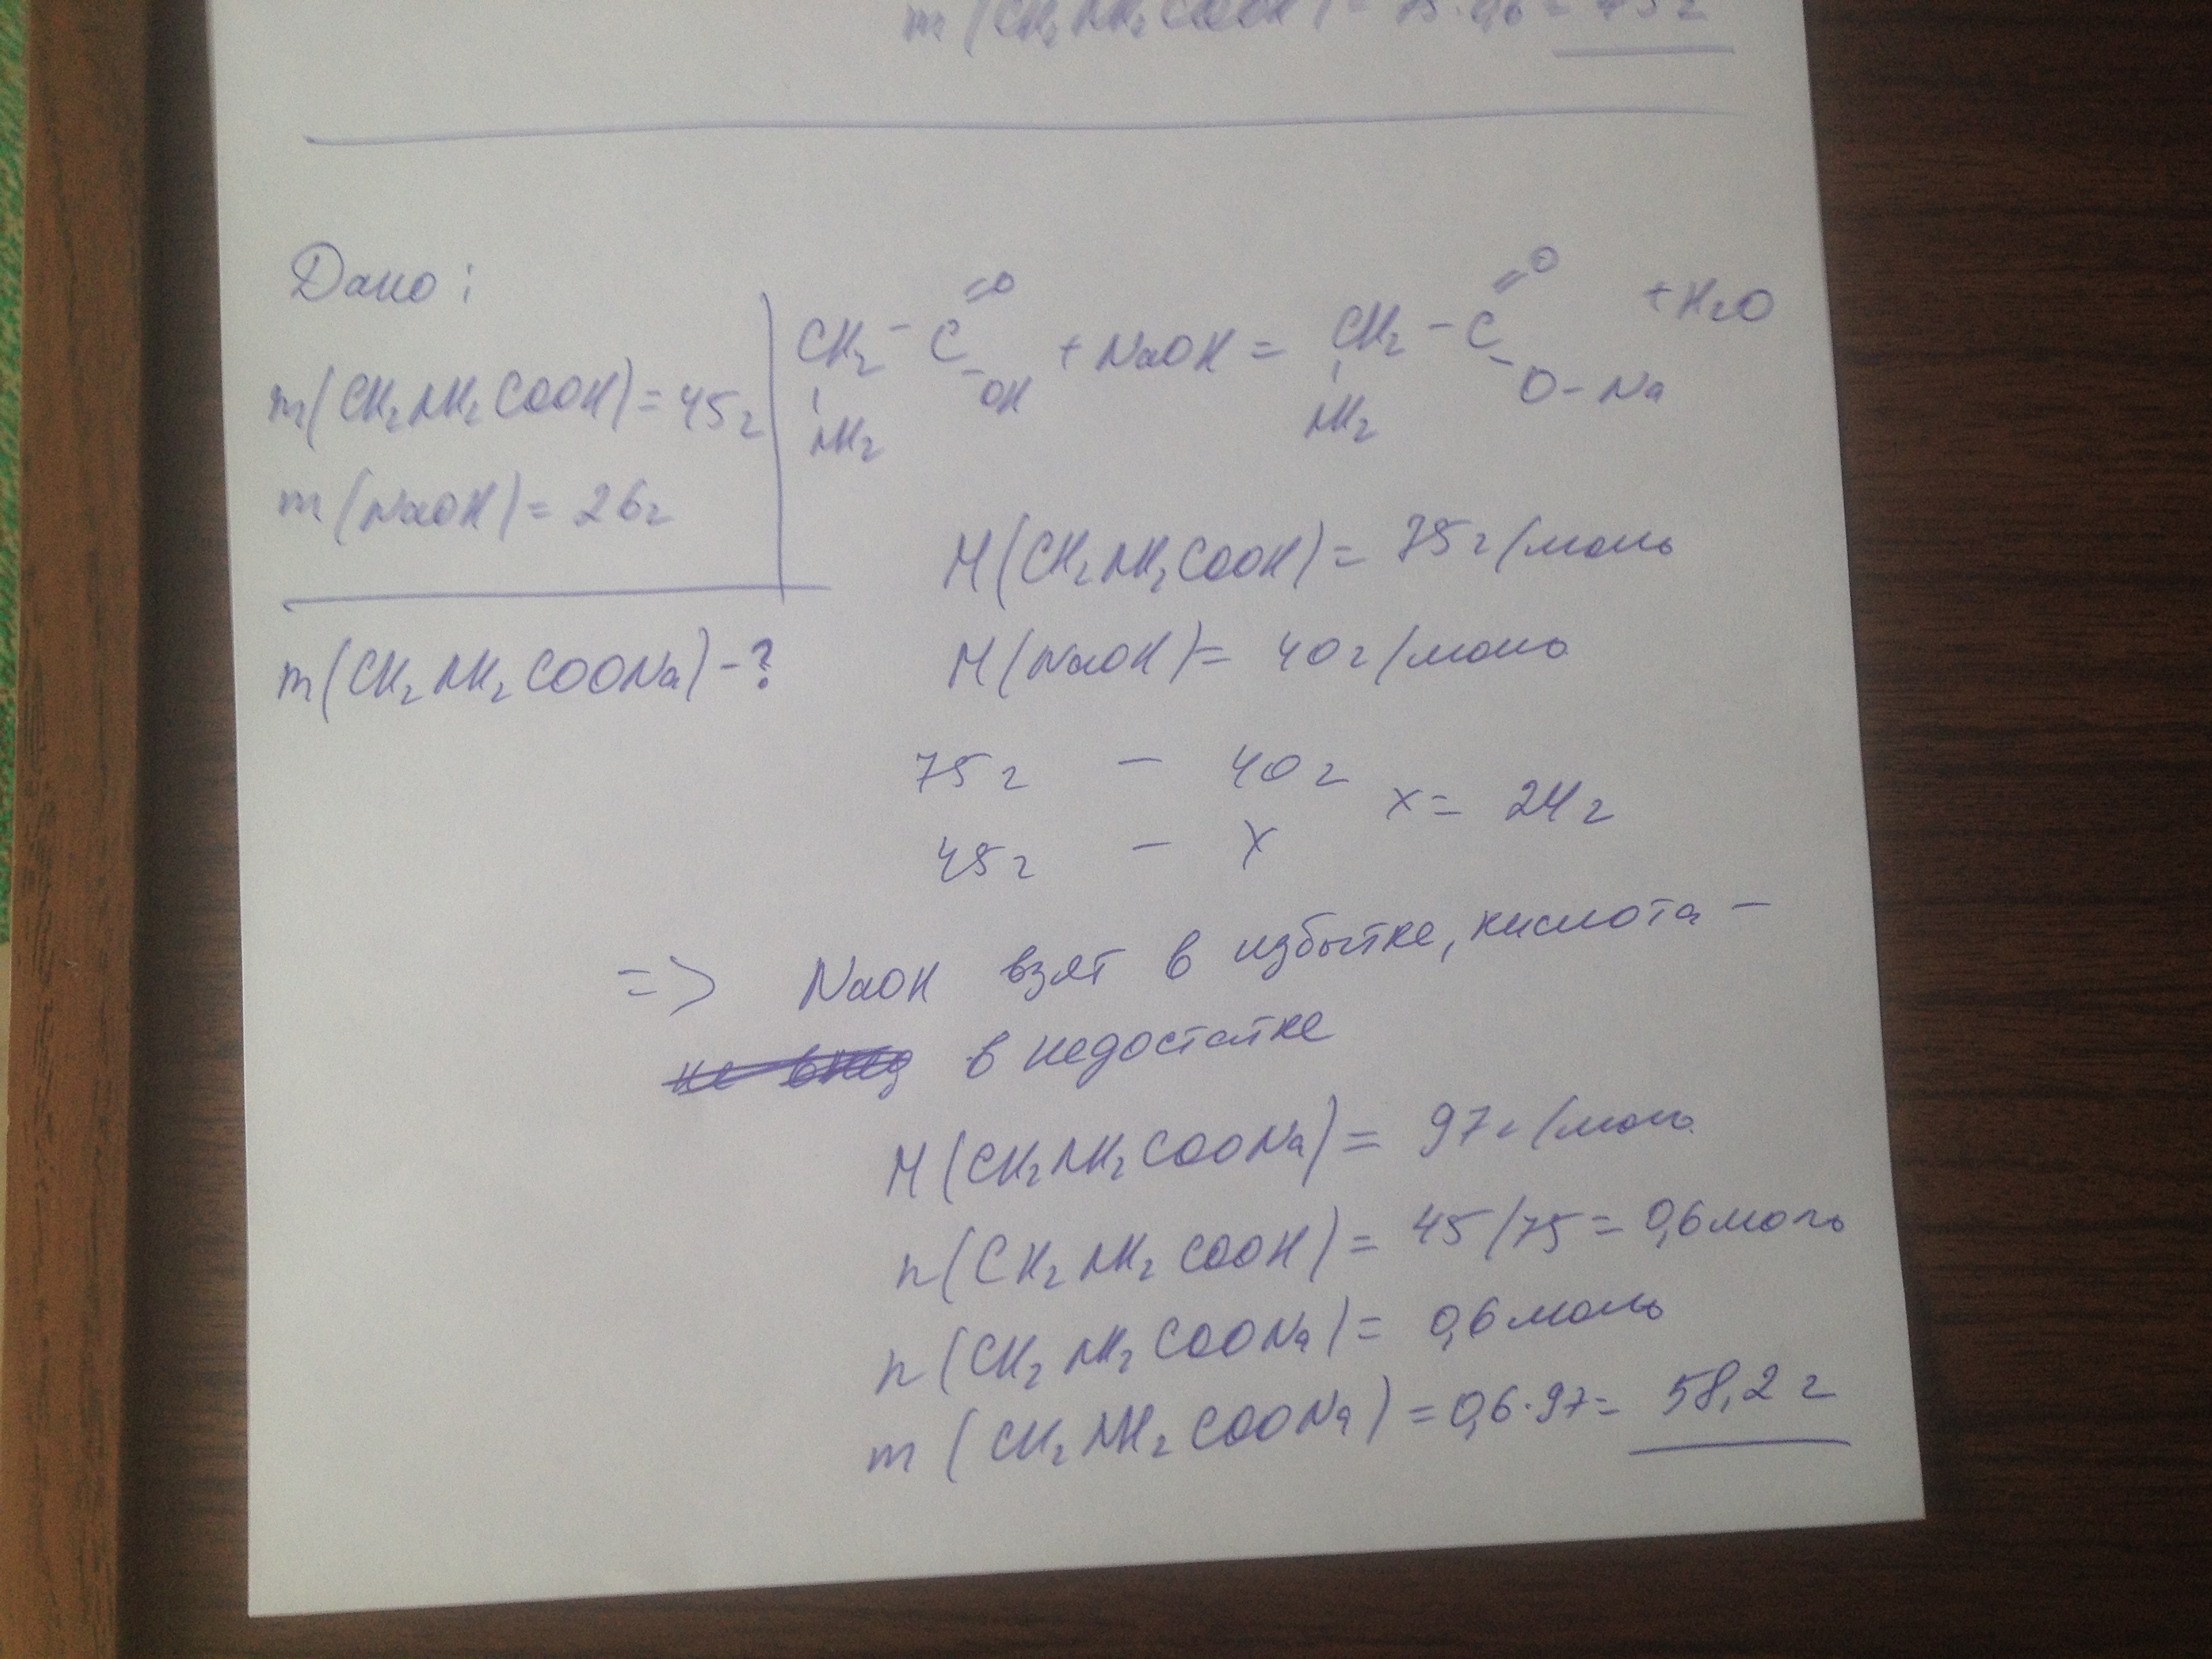 m(CH₂NH₂COOH) = 75·0,6 = 45 г
Дано:
m(CH₂NH₂COOH) = 45г
m(NaOH) = 26г
m(CH₂NH₂COONa) - ?
CH₂ - C =O - OH + NaOH = CH₂ - C =O - O - Na + H₂O
NH₂ NH₂
M(CH₂NH₂COOH) = 75 г/моль
M(NaOH) = 40 г/моль
75 г - 40 г
45 г - x x = 24 г
=> NaOH взят в избытке, кислота -
в недостатке
M(CH₂NH₂COONa) = 97 г/моль
n(CH₂NH₂COOH) = 45/75 = 0,6 моль
n(CH₂NH₂COONa) = 0,6 моль
m(CH₂NH₂COONa) = 0,6·97 = 58,2 г